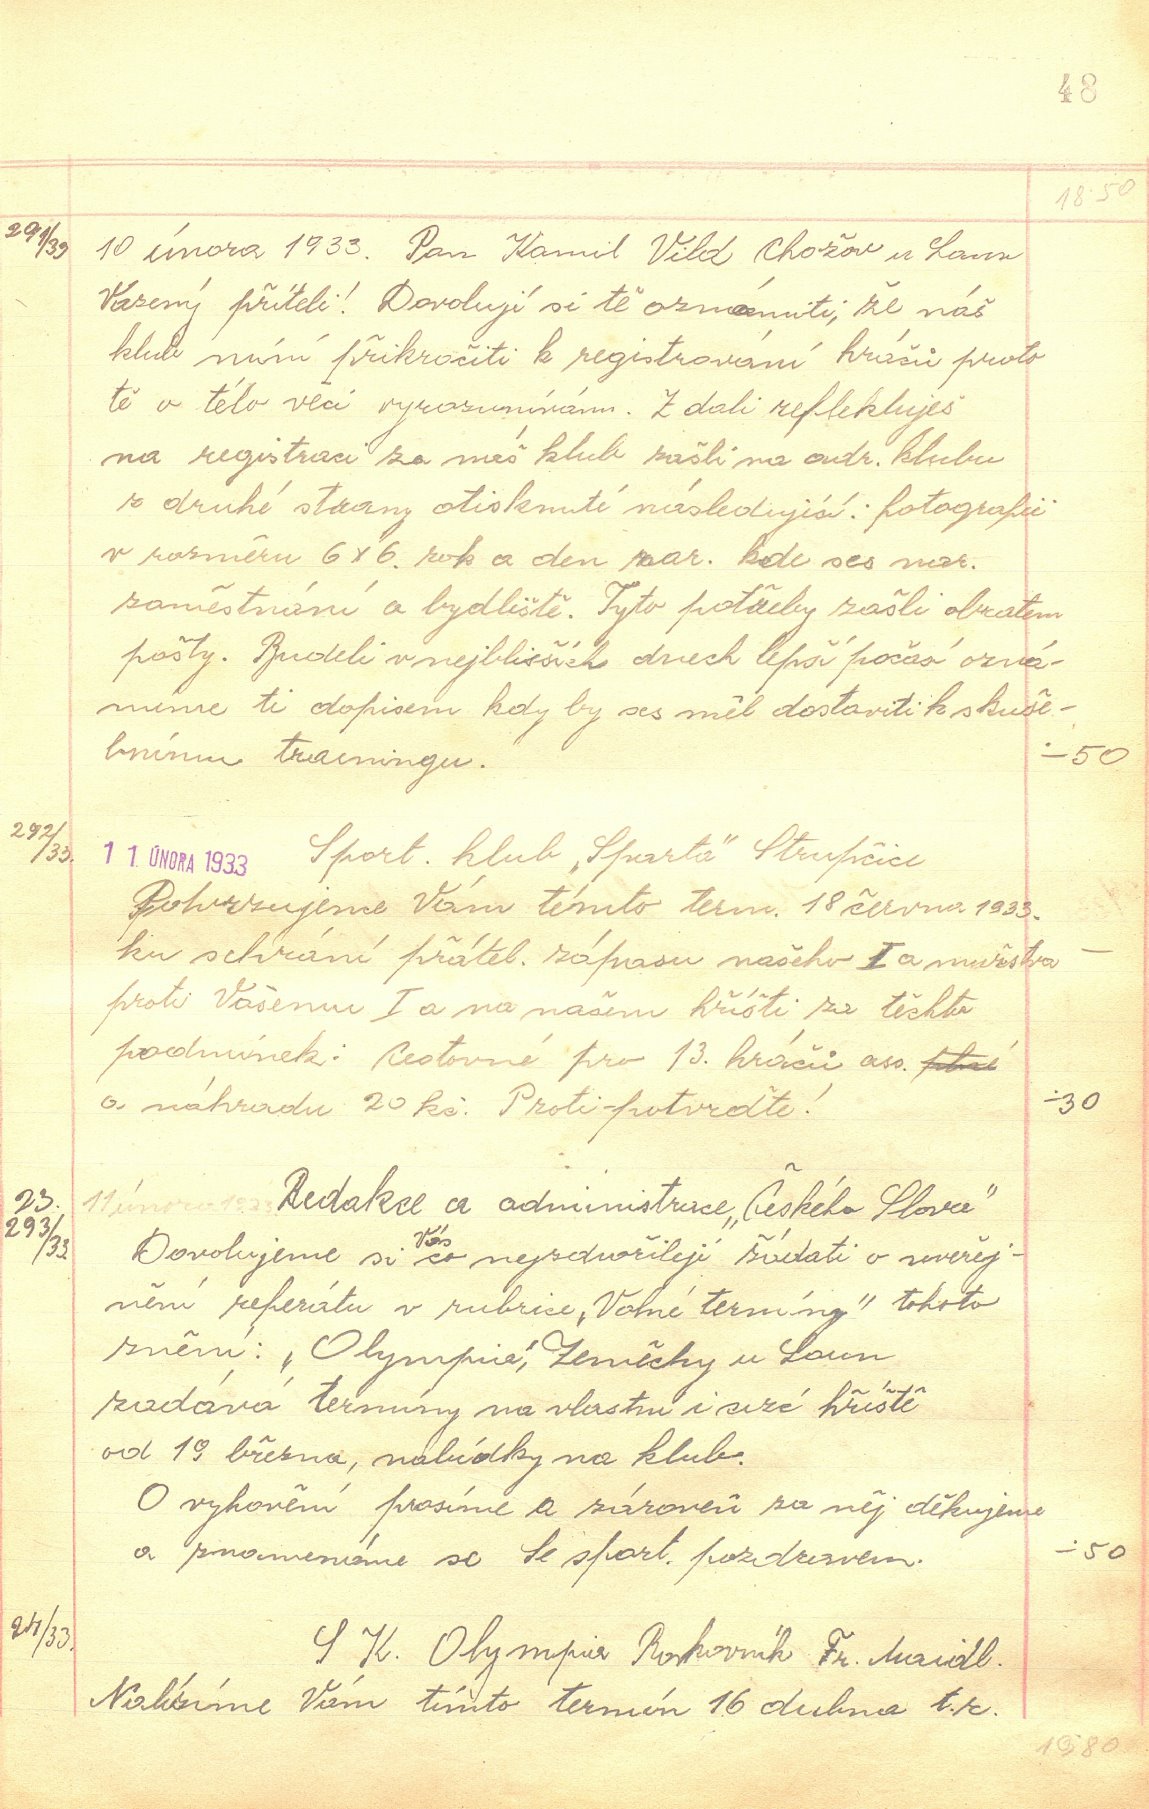 48
18·50
291/33 10 února 1933. Pan Kamil Vild Chožov u Loun
Vázený příteli! Dovolují si tě oznámiti, že náš
klub míní přikročiti k registrování hráčů proto
tě o této věci vyrozumívám. Zdali reflektuješ
na registraci za náš klub zašli na adr. klubu
z druhé strany otisknuté následující: fotografii
v rozměru 6x6. rok a den nar. kde ses nar.
zaměstnání a bydliště. Tyto potřeby zašli obratem
pošty. Budeli v nejbližších dnech lepší počasí ozná-
míme ti dopisem kdy by ses měl dostaviti k skuše-
bnímu trainingu. -50
292/33. 11 ÚNORA 1933 Sport. klub „Sparta" Strupčice
Potvrzujeme Vám tímto term. 18 června 1933.
ku sehrání přátel. zápasu našeho I a mužstva —
proti Vašemu I a na našem hřišti za těchto
podmínek: Cestovné pro 13. hráčů ass.
a náhradu 20 kč. Proti-potvrďte! -30
23. 11 února 1933 Redakce a administrace „Českého Slova"
293/33 Dovolujeme si Vás co nejzdvořileji žádati o uveřej-
nění referátu v rubrice „Volné termíny" tohoto
znění: „Olympia", Zeměchy u Loun
zadává termíny na vlastní i cizé hřiště
od 19 března, nabídky na klub.
O vyhovění prosíme a zároveň za něj děkujeme
a znamenáme se Se sport. pozdravem. -50
24/33. S K. Olympia Rakovník Fr. Maidl.
Nabízíme Vám tímto termín 16 dubna t.r.
1980